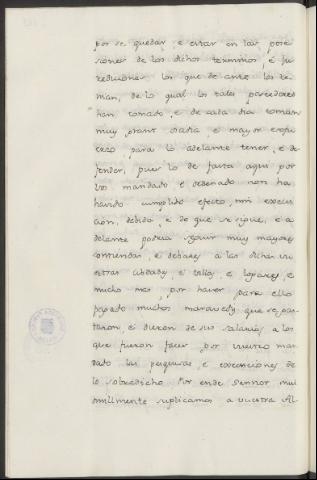 por se quedar, e estar en las pose
siones de los dichos terminos, e ju
rediciones los que de ante los te
nian, de lo qual los tales poseedores
han tomado, e de cada dia toman
muy grant osadia, e mayor esfu
erzo para lo adelante tener, e de
fender, pues lo de fasta aqui por
vos mandado e ordenado non ha
havido cumplido efecto, nin execu
cion, debido, e de que se sigue, e a
delante podria seguir muy mayores
contiendas, e debates, a las dichas vu
estras cibdades, e villas, e logares, e
mucho mas, por haver para ello
pagado muchos maravedis que repar
tieron, e dieron de sus salarios, a los
que fueron facer, por vuestro man
dado las pesquisas, e execuciones de
lo sobredicho. Por ende Sennor mui
omillmente suplicamos a vuestra Al-